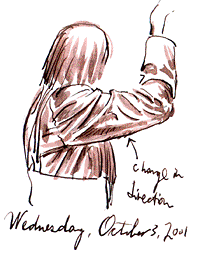 change in
direction
Wednesday, October 3, 2001